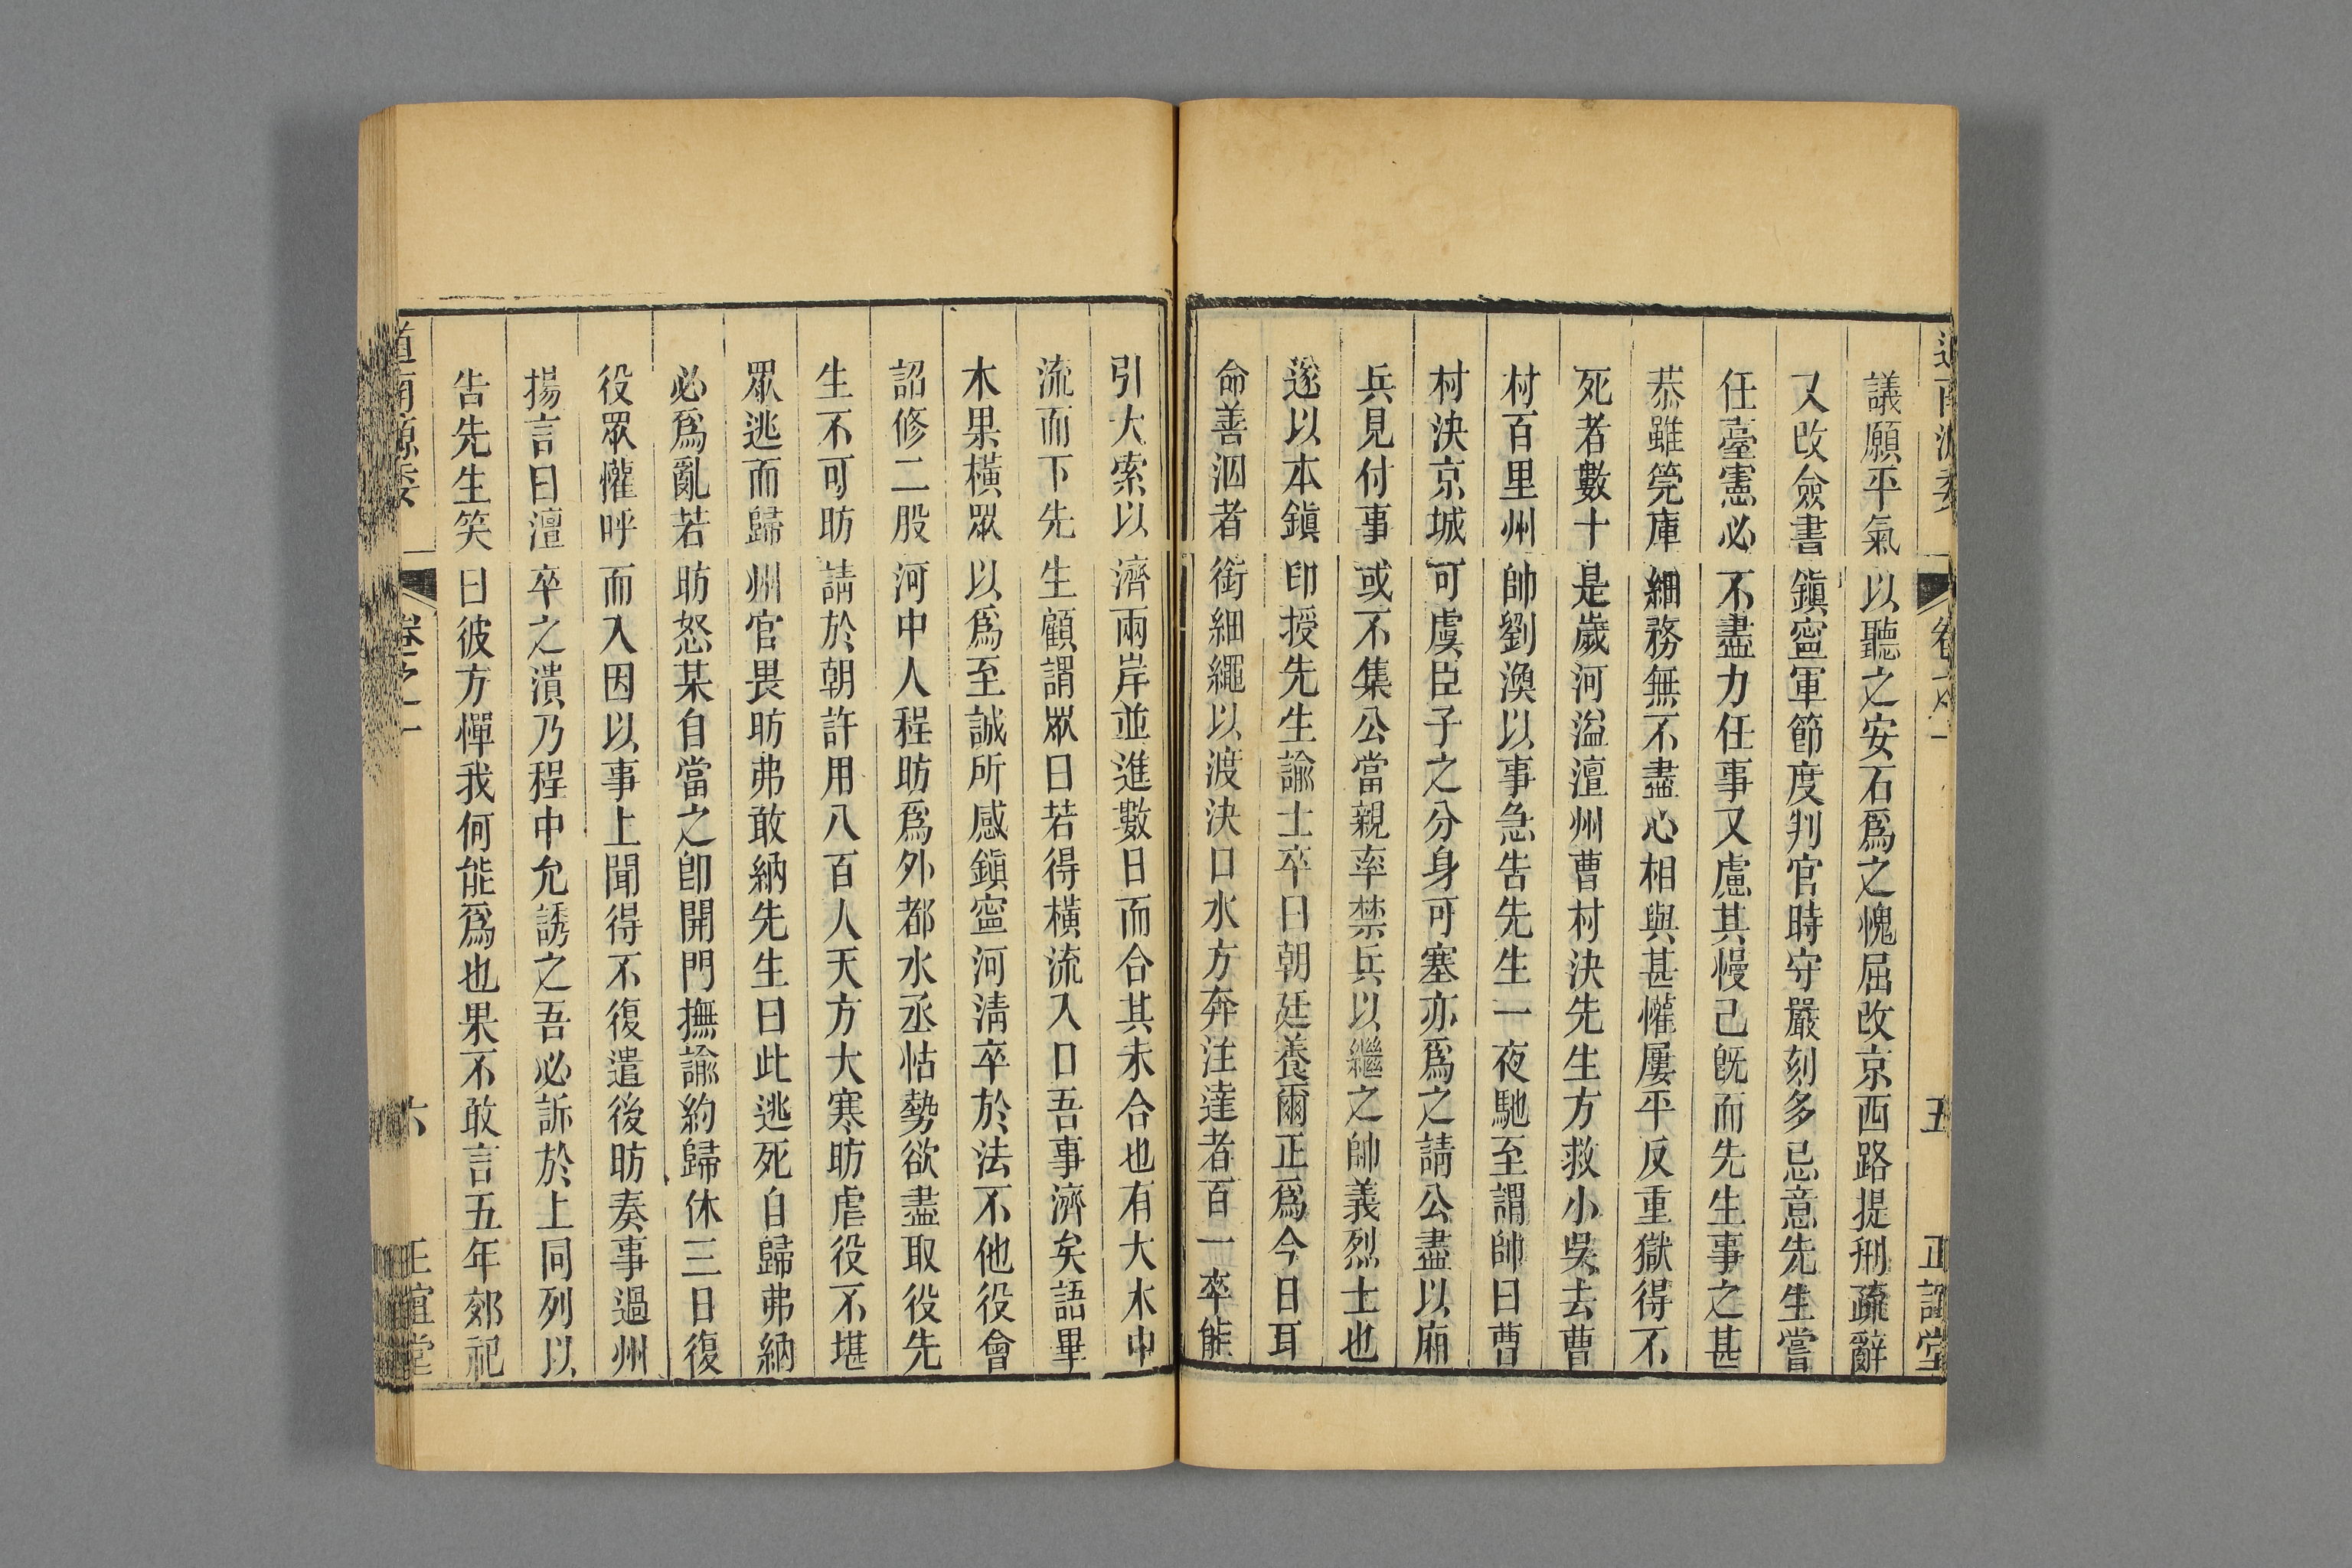 議願平氣以聽之安石爲之愧屈改京西路提刑疏辭
又改僉書鎭寧軍節度判官時守嚴刻多忌意先生嘗
任臺憲必不盡力任事又慮其慢己旣而先生事之甚
恭雖筦庫細務無不盡心相與甚懽屢平反重獄得不
死者數十是歲河溢澶州曹村決先生方救小吳去曹
村百里州帥劉渙以事急告先生一夜馳至謂帥曰曹
村決京城可虞臣子之分身可塞亦爲之請公盡以廂
兵見付事或不集公當親率禁兵以繼之帥義烈士也
遂以本鎭印授先生諭士卒曰朝廷養爾正爲今日耳
命善泅者銜細繩以渡決口水方奔注達者百一卒能
引大索以濟兩岸並進數日而合其未合也有大木中
流而下先生顧謂眾曰若得橫流入口吾事濟矣語畢
木果橫眾以爲至誠所感鎭寧河淸卒於法不他役會
詔修二股河中人程昉爲外都水丞怙勢欲盡取役先
生不可昉請於朝許用八百人天方大寒昉虐役不堪
眾逃而歸州官畏昉弗敢納先生曰此逃死自歸弗納
必爲亂若昉怒某自當之卽開門撫諭約歸休三日復
役眾懽呼而入因以事上聞得不復遣後昉奏事過州
揚言曰澶卒之潰乃程中允誘之吾必訴於上同列以
告先生笑曰彼方憚我何能爲也果不敢言五年郊祀
道南源委 卷之一 六 正誼堂